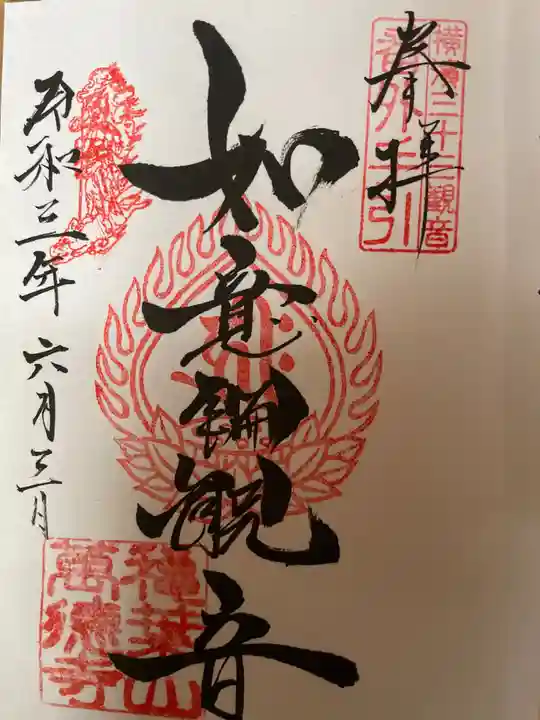 奉拝
横濱三十三観音
番外
如意輪観音
令和三年 六月三日
萬徳寺